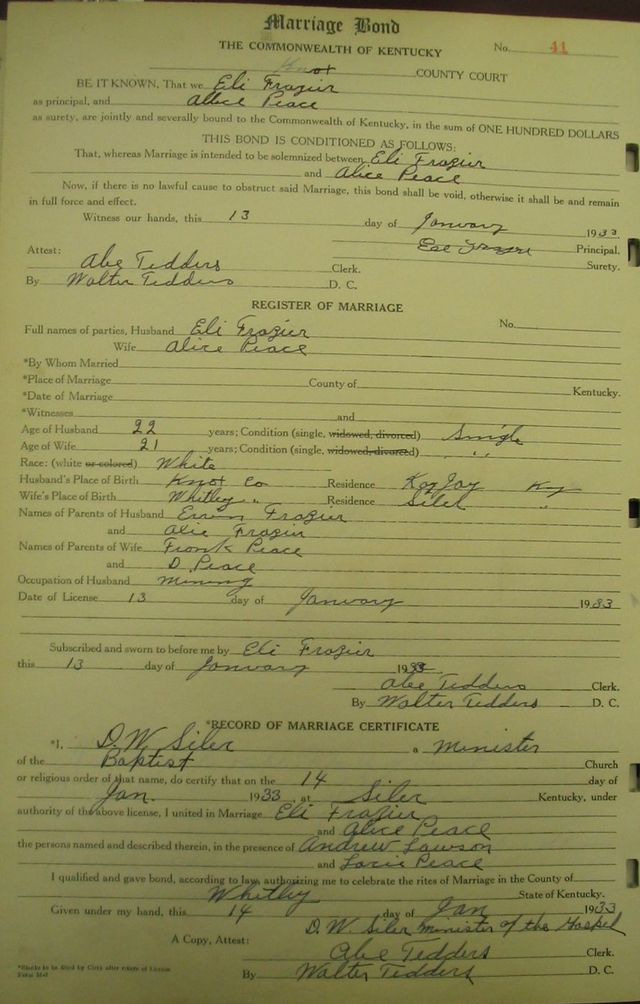 Marriage Bond
THE COMMONWEALTH OF KENTUCKY No. 41
Knox COUNTY COURT
BE IT KNOWN, That we Eli Frazier
as principal, and Alice Peace
as surety, are jointly and severally bound to the Commonwealth of Kentucky, in the sum of ONE HUNDRED DOLLARS
THIS BOND IS CONDITIONED AS FOLLOWS:
That, whereas Marriage is intended to be solemnized between Eli Frazier
and Alice Peace
Now, if there is no lawful cause to obstruct said Marriage, this bond shall be void, otherwise it shall be and remain
in full force and effect.
Witness our hands, this 13 day of January 1933
Principal.
Attest: Surety.
Abe Tedders Clerk.
By Walter Tedders D. C.
REGISTER OF MARRIAGE
Full names of parties, Husband Eli Frazier No.
Wife Alice Peace
*By Whom Married
*Place of Marriage County of Kentucky.
*Date of Marriage
*Witnesses and
Age of Husband 22 years; Condition (single, widowed, divorced) Single
Age of Wife 21 years; Condition (single, widowed, divorced) " "
Race: (white or colored) White
Husband's Place of Birth Knox Co Residence Kay Jay Ky
Wife's Place of Birth Whitley " Residence Siler "
Names of Parents of Husband Frazier
and Frazier
Names of Parents of Wife Frank Peace
and D. Peace
Occupation of Husband Mining
Date of License 13 day of January 1933
Subscribed and sworn to before me by Eli Frazier
this 13 day of January 1933
Abe Tedders Clerk.
By Walter Tedders D. C.
*RECORD OF MARRIAGE CERTIFICATE
*I, D.W. Siler a Minister
of the Baptist Church
or religious order of that name, do certify that on the 14 day of
Jan. 1933, at Siler Kentucky, under
authority of the above license, I united in Marriage Eli Frazier
and Alice Peace
the persons named and described therein, in the presence of Andrew Lawson
and Peace
I qualified and gave bond, according to law, authorizing me to celebrate the rites of Marriage in the County of
Whitley State of Kentucky.
Given under my hand, this 14 day of Jan 1933
D. W. Siler minister of the Gospel
A Copy, Attest: Abe Tedders Clerk.
By Walter Tedders D. C.
*Blanks to be filled by Clerk after return of License